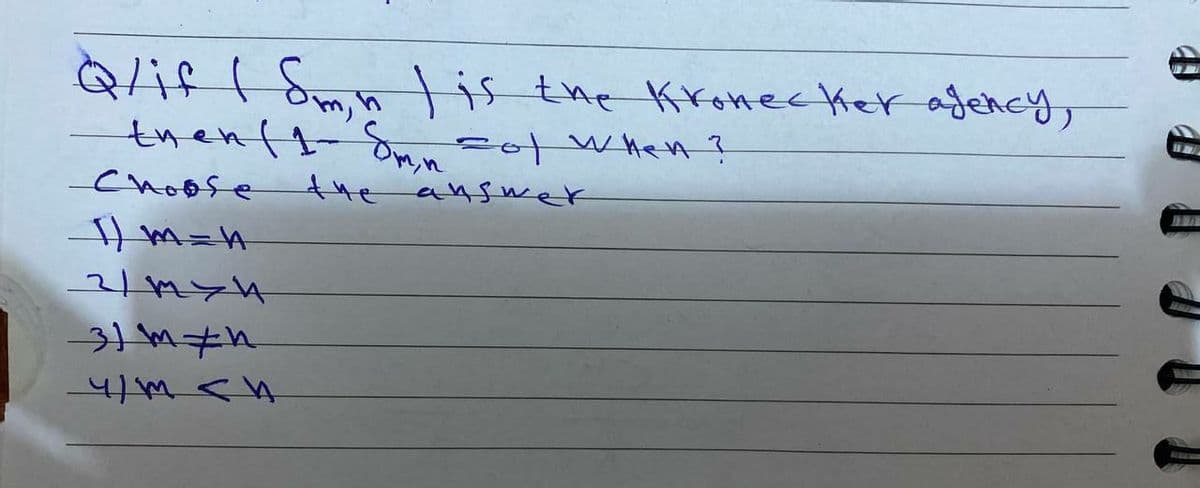 Q/if (δm,n) is the Kronecker agency,
then (1-δm,n =0) when?
Choose the answer
1) m=n
2) m>n
3) m≠n
4) m<n